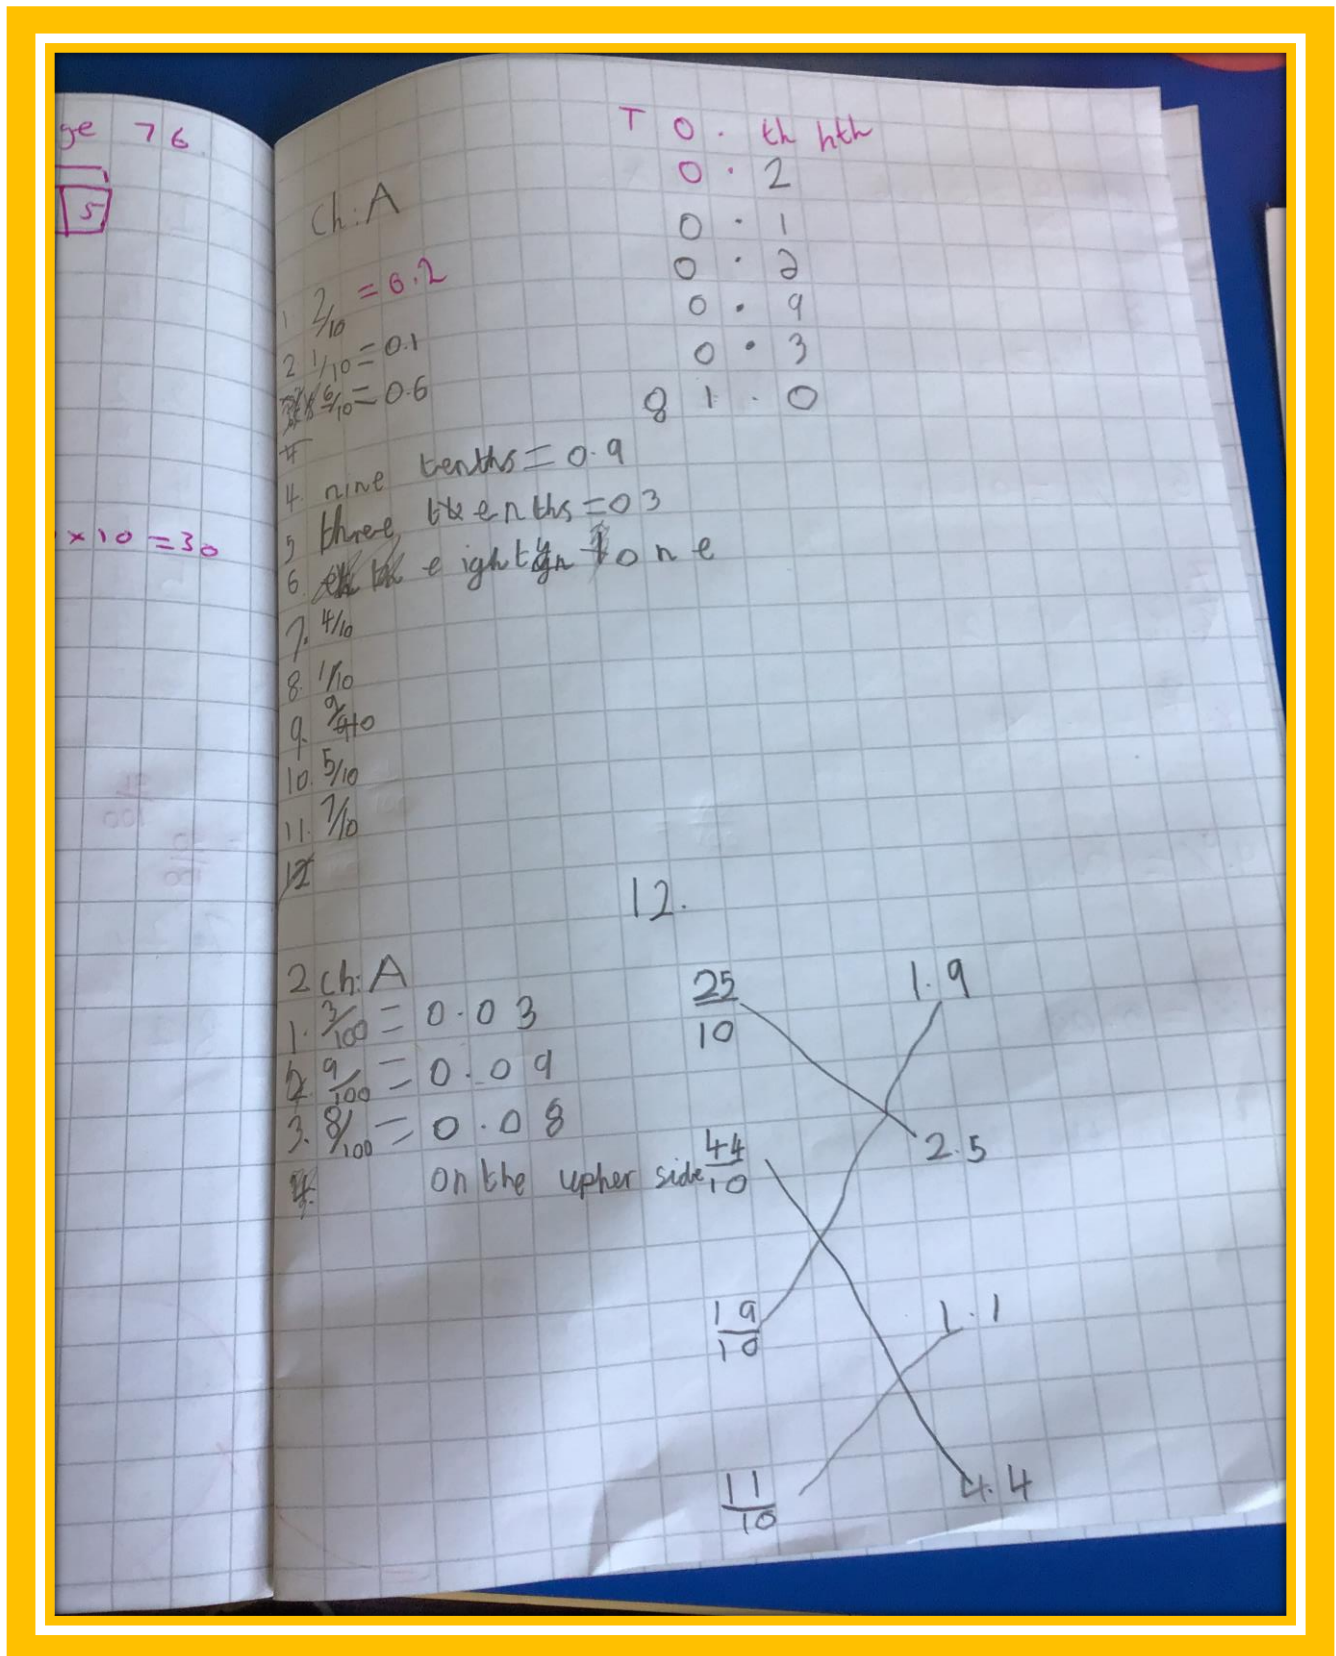 ge 76.
5
× 10 = 30
T O . th hth
0 . 2
0 . 1
0 . 2
0 . 9
0 . 3
8 1 . 0
Ch: A
1 2/10 = 0.2
2 1/10 = 0.1
6/10 = 0.6
4. nine tenths = 0.9
5 three tenths = 0 3
6. eighty one
7. 4/10
8. 1/10
9. 9/10
10. 5/10
11. 7/10
12
12.
2 Ch: A
1. 3/100 = 0.03
2. 9/100 = 0.09
3. 8/100 = 0.08
4. on the upher side
25/10 1.9
44/10 2.5
19/10 1.1
11/10 4.4